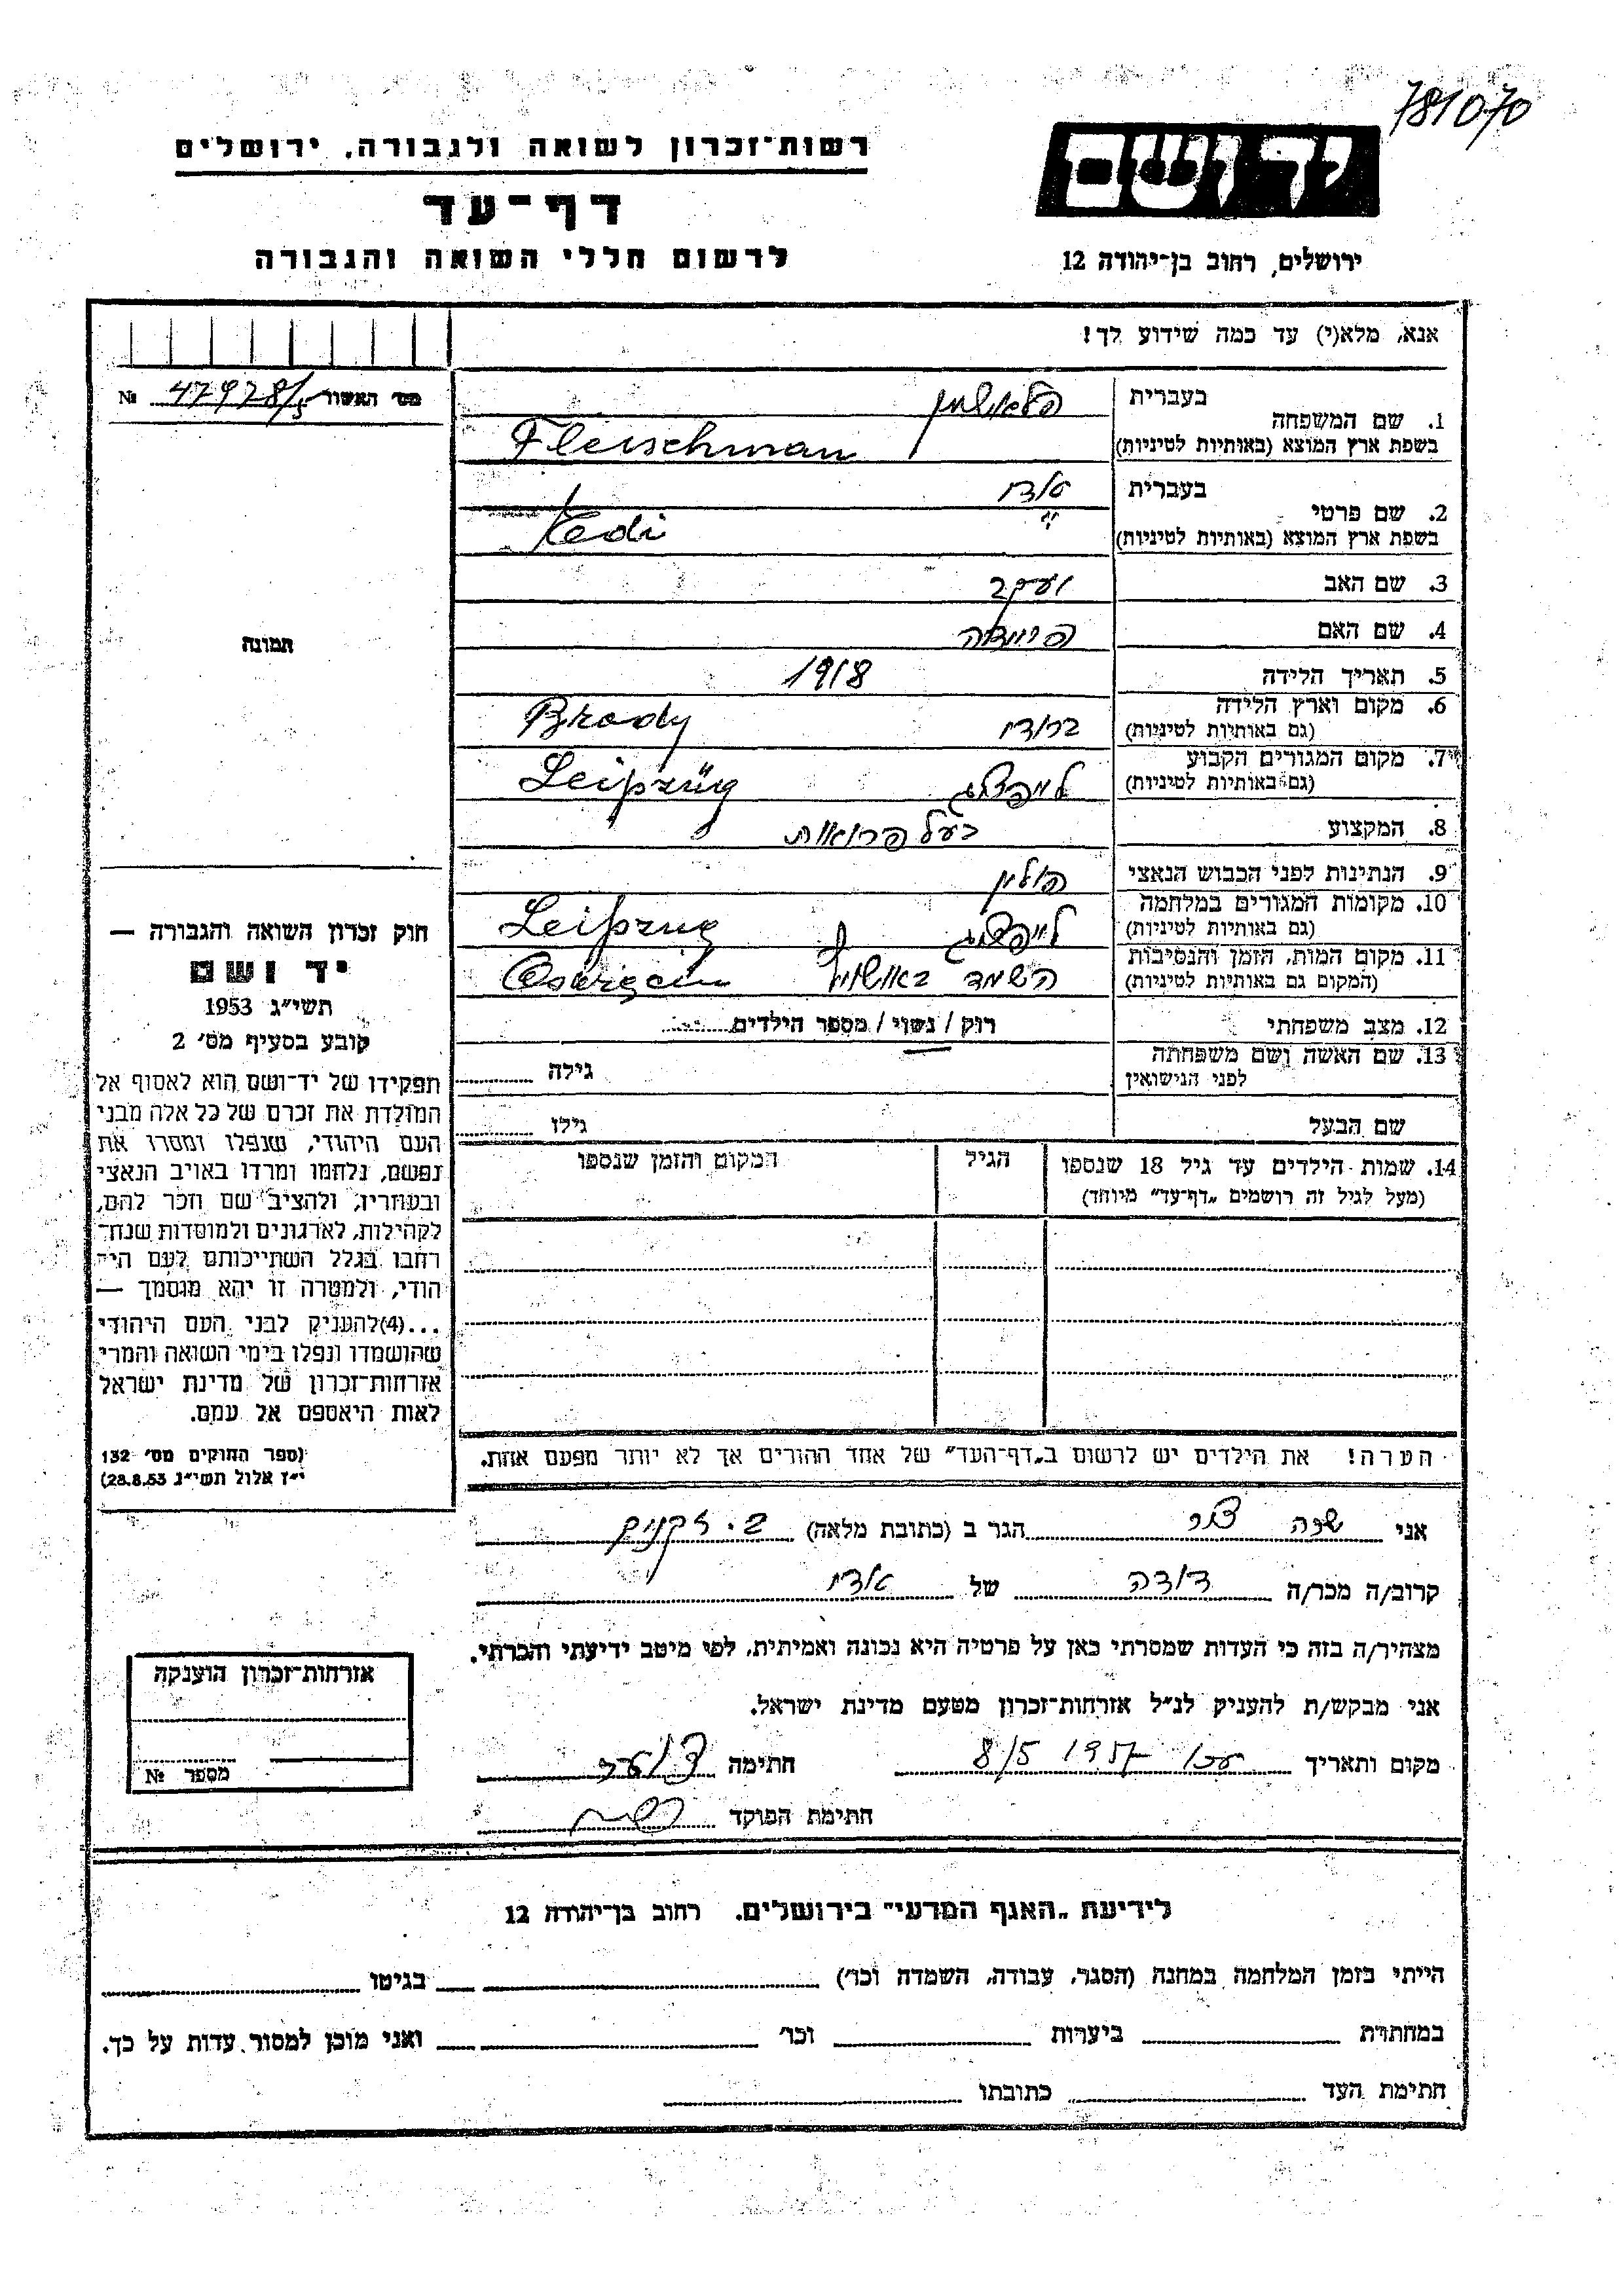 781070
רשות־זכרון לשואה ולגבורה, ירושלים
יד ושם
דף־עד
לרשום חללי השואה והגבורה
ירושלים, רחוב בן־יהודה 12
אנא, מלא(י) עד כמה שידוע לך!
מס׳ האשור 47978/5 №
1. שם המשפחה
בעברית פלאושמן
בשפת ארץ המוצא (באותיות לטיניות) Fleischman
2. שם פרטי
בעברית טדי
בשפת ארץ המוצא (באותיות לטיניות) Tedi
3. שם האב יעקב
4. שם האם
5. תאריך הלידה 1918
6. מקום וארץ הלידה
(גם באותיות לטיניות) ברודי Brody
7. מקום המגורים הקבוע
(גם באותיות לטיניות) לייפציג Leipzüg
8. המקצוע בעל
9. הנתינות לפני הכבוש הנאצי פולין
10. מקומות המגורים במלחמה
(גם באותיות לטיניות) לייפציג Leipzug
11. מקום המות, הזמן והנסיבות
(המקום גם באותיות לטיניות) השמד
12. מצב משפחתי רוק / נשוי / מספר הילדים
13. שם האשה ושם משפחתה
לפני הנישואין גילה
שם הבעל גילו
14. שמות הילדים עד גיל 18 שנספו
(מעל לגיל זה רושמים „דף־עד" מיוחד)
הגיל
המקום והזמן שנספו
הערה! את הילדים יש לרשום ב„דף־העד" של אחד ההורים אך לא יותר מפעם אחת.
תמונה
חוק זכרון השואה והגבורה —
יד ושם
תשי״ג 1953
קובע בסעיף מס׳ 2
תפקידו של יד־ושם הוא לאסוף אל
המולדת את זכרם של כל אלה מבני
העם היהודי, שנפלו ומסרו את
נפשם, נלחמו ומרדו באויב הנאצי
ובעוזריו, ולהציב שם וזכר להם,
לקהילות, לארגונים ולמוסדות שנח־
רבו בגלל השתייכותם לעם הי־
הודי, ולמטרה זו יהא מוסמך —
...(4)להעניק לבני העם היהודי
שהושמדו ונפלו בימי השואה והמרי
אזרחות־זכרון של מדינת ישראל
לאות היאספם אל עמם.
(ספר החוקים מס׳ 132
י״ז אלול תשי״ג 28.8.53)
אני שרה הגר ב (כתובת מלאה) ב. זקנים
קרוב/ה מכר/ה דודה של טדי
מצהיר/ה בזה כי העדות שמסרתי כאן על פרטיה היא נכונה ואמיתית, לפי מיטב ידיעתי והכרתי.
אני מבקש/ת להעניק לנ״ל אזרחות־זכרון מטעם מדינת ישראל.
מקום ותאריך עכו 8/5 1957 חתימה
חתימת הפוקד
אזרחות־זכרון הוענקה
מספר №
לידיעת „האגף המדעי" בירושלים, רחוב בן־יהודה 12
הייתי בזמן המלחמה במחנה (הסגר, עבודה, השמדה וכו׳) בגיטו
במחתרת ביערות וכו׳ ואני מוכן למסור עדות על כך.
חתימת העד כתובתו